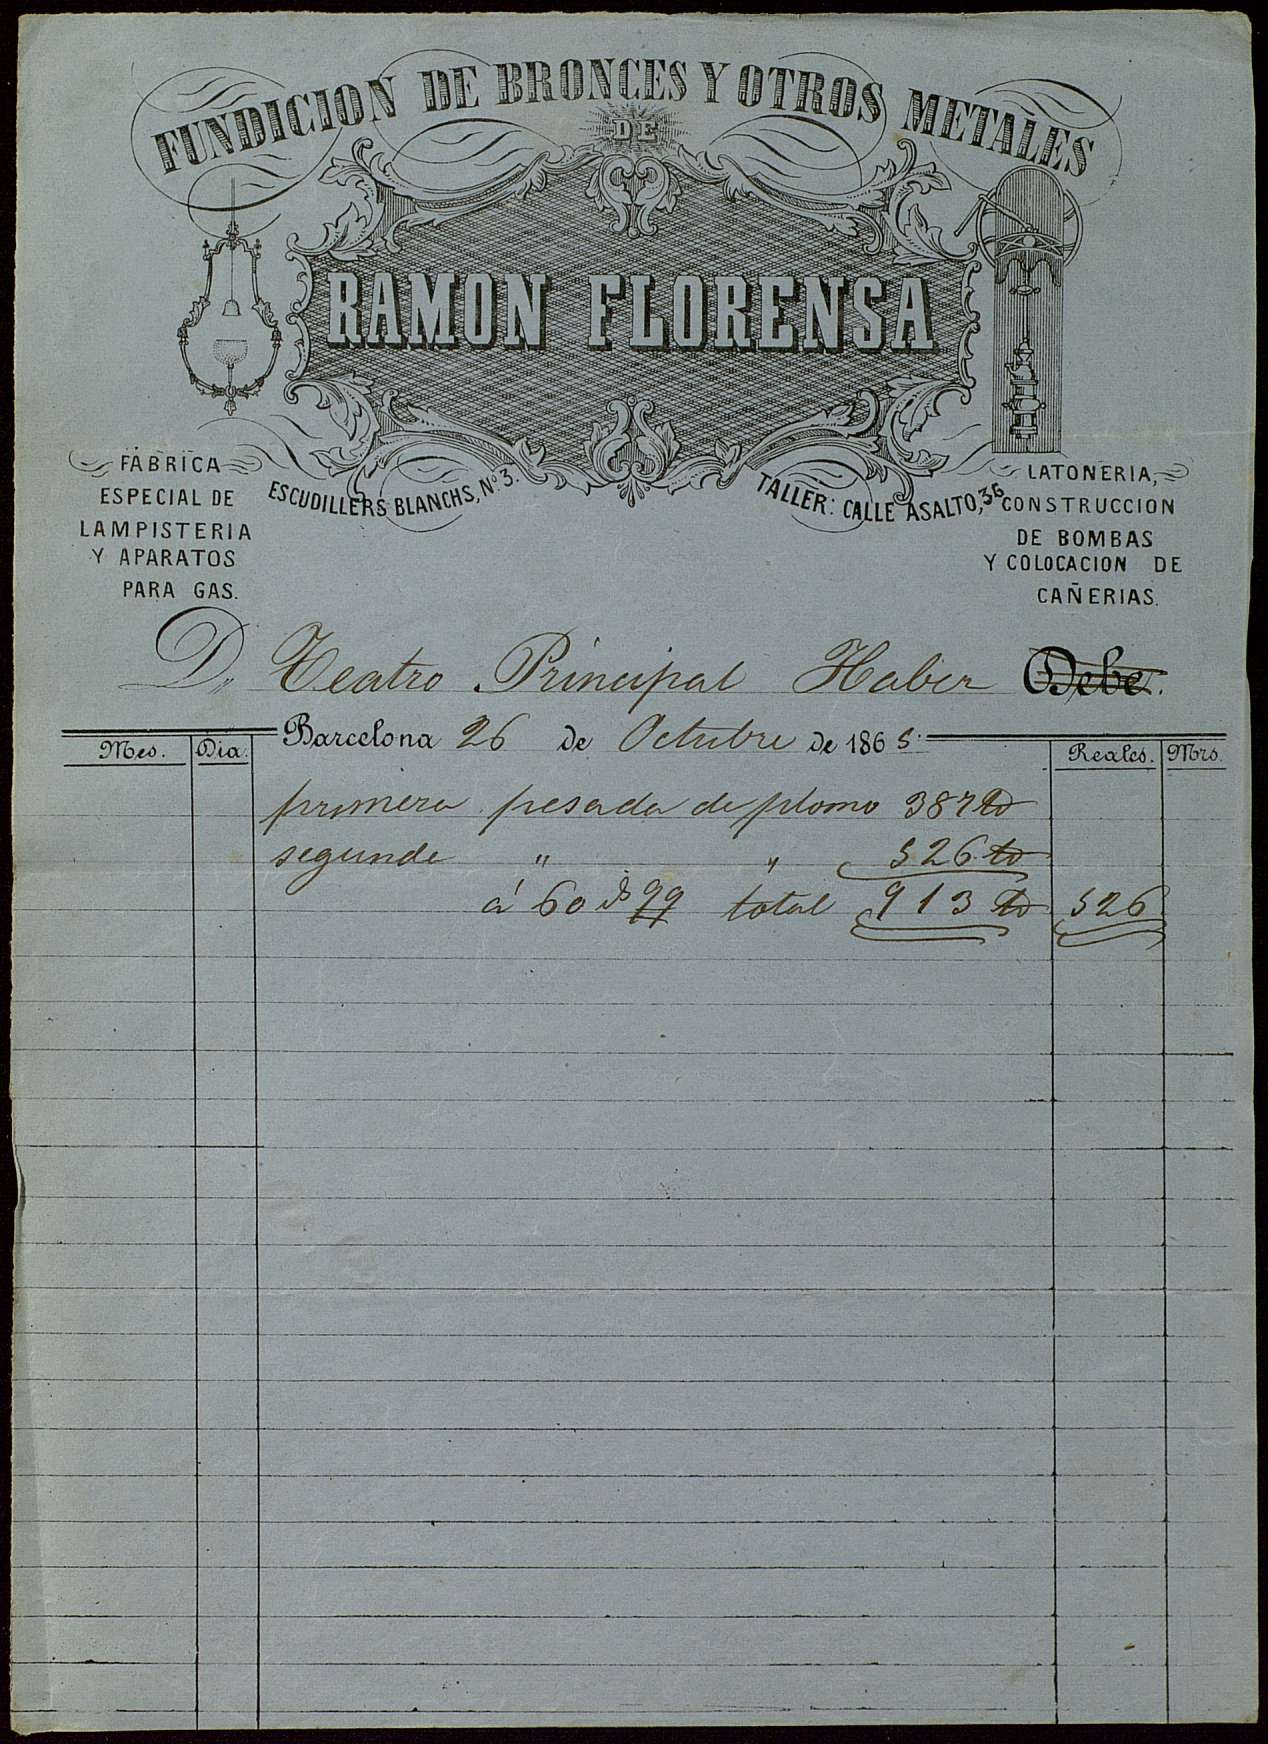 FUNDICION DE BRONCES Y OTROS METALES
DE
RAMON FLORENSA
FÁBRICA
ESPECIAL DE
LAMPISTERIA
Y APARATOS
PARA GAS.
ESCUDILLERS BLANCHS, Nº 3.
TALLER: CALLE ASALTO, 36
LATONERIA,
CONSTRUCCION
DE BOMBAS
Y COLOCACION DE
CAÑERIAS.
D. Teatro Principal Haber Debe.
Barcelona 26 de Octubre de 1865.
Mes. Dia. Reales. Mrs.
primera pesada de plomo 387 lb
segunde " " 526 lb
á 60 total 913 lb 526